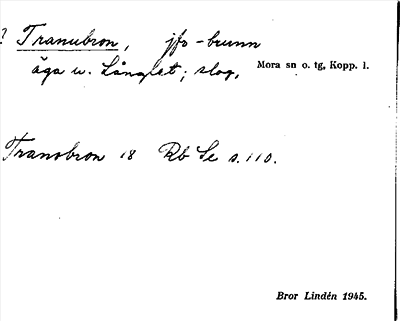 ? Tranubron, jfr -brunn
äga u. Långlet; slog, Mora sn o. tg, Kopp. l.
Tranobron 18 Rb Se s. 110.
Bror Lindén 1945.